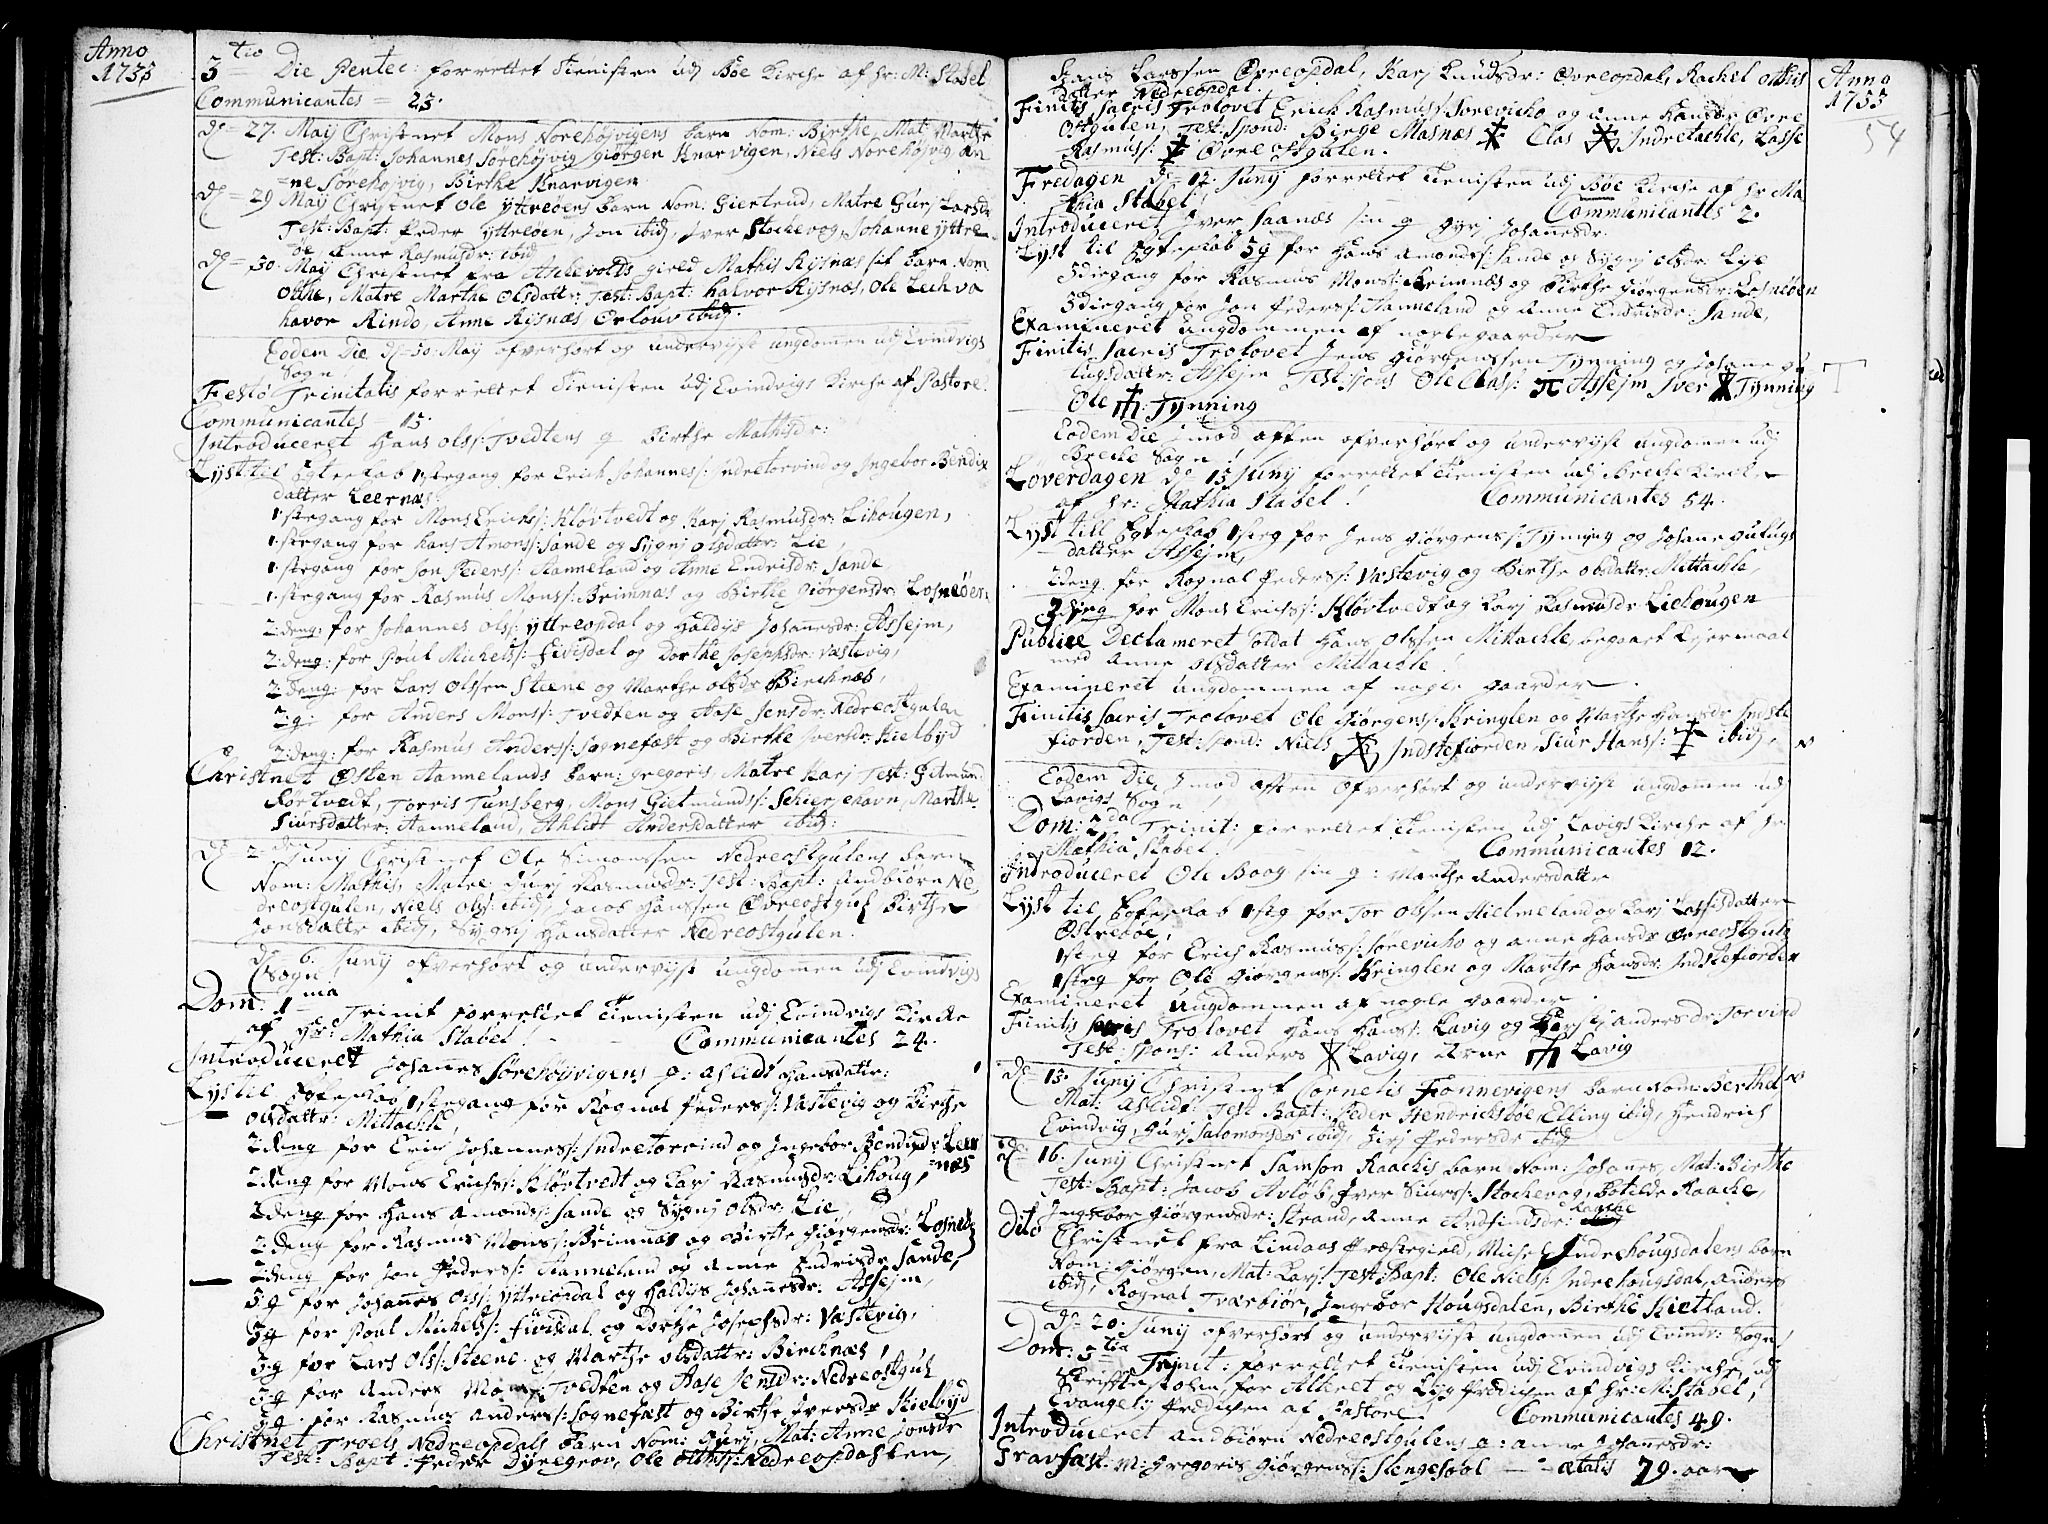 Anno
1735
3tio Die Pentec: forrettet Tienisten udj Böe Kirche af hr: M: Stabel
Communicantes = 23.
d = 27. Maij Christnet Mons Norehöjvigens barn Nom: Birthe, Mat: Marthe
Test: Bapt: Johannes Sörehöjvig, giörgen Knarvigen, Niels Norehöjvig, An
=ne Sörehöjvig, Birthe Knarvigen
d = 29 Maij Christnet Ole Ytteröens barn Nom: Giertrud, Matre Gurj Larsdr
Test: Bapt: Peder Ytteröen, Jon ibid, Iver Stochevog, Johanne Yttre
öe Anne Rasmusdr: ibid
d = 30. Maij Christnet fra Aschevolds gield Mathis Rijsnæs sit barn Nom
Otthe, Matre Marthe Olsdatter: Test: Bapt: halvor Rijsnæs, Ole
havor Rindo, Anne Rijsnæs, ibid.
Eodem Die d = 30. Maij ofverhört og undervijst ungdomen udj Evindvigs
Sogn
Festo Trinitatis forrettet Tienisten udj Evindvigs Kirche af Pastore.
Communicantes = 15.
Introduceret Hans Ols: Tvedtens q Birthe Mathisdr:
Lyst til Egteskab 1stegang for Erich Johannes: Indretorvind og Ingebor Bendix
datter Leernæs
1.stegang for Mons Erichs: Klövtvedt og Karj Rasmusdr: Lihougen,
1.stegang for hans Amons: Sande og Sygnj Olsdatter: Lie,
1.stegang for Jon Peders: Hanneland og Anne Endrisdr: Sande
1.stegang for Rasmus Mons: Brimnæs og Birthe Giörgensdr: Losneöen
2:deng: for Johannes Ols: Yttreopdal og Haldis Johanesdr: Assejm,
2:deng: for Poul Michels: Fivisdal og Dorthe Josephsdr: Væstevig,
2:deng: for Lars Olssen Steene og Marthe Olsdr Birchnæs,
2:g: for Anders Mons: Tvedten og Aase Jensdr: Nedreostgulen
2:deng: for Rasmus Anders: Sognefæst og Birthe Iversdr: Kielbyd
Christnet Östen Hannelands barn: gregoris. Matre Karj Test: Getmund
Körtvedt, Torris Tunsberg, Mons Gietmunds: Schierjehavn, Marthe
Siursdatter: Hanneland, Ahlitt Andersdatter ibid:
d = 2. Junij Christnet Ole Simonssen Nedreostgulens barn
Nom: Mathis, Matre: Gurj Rasmusdr: Test: Bapt: Andbiörn Ne,
dreostgulen, Niels Ols: ibid, Jacob Hanssen Övreostgul Birthe
Jonsdatter ibid, Sygnj Hansdatter Nedreostgulen.
d = 6. Junij ofverhört og undervijst ungdomen udj Evindvigs
Sogn
Dom: 1ma Trinit forrettet Tienisten udj Evindvigs Kircke
af hr: Mathia Stabel! Communicantes 24.
Introduceret Johannes Sörehöjvigens q: Ahlidt Hansdatter:
Lyst til Egteskab 1stegang for Rognal Peders: Væstevig og Birthe
Olsdatter: Mittachle,
2deng for Erich Johannes: Indretorvind og Ingebor Bendixdr: Leer
=næs
2deng for Mons Erichs: Klövtvedt og Karj Rasmusdr: Lihoug,
2deng for Hans Amonds: Sande og Sygnj Olsdr: Lie,
2 deng for Rasmus Mons: Brimnæs og Birthe Giörgensdr: Losneö
2deng for Jon Peders: Hanneland og Anne Endrisdr Sande,
3g for Johannes Ols: Yttreopdal og Haldis Johannesdr: Assejm,
3g for Poul Michels: Fivisdal og Dorthe Josephsdr: Væstevig,
3:g for Lars Ols: Steene og Marthe Olsdatter: Birchnæs,
3:g for Anders Mons: Tvedten og Aase Jensdr: Nedreostgul
3:g for Rasmus Anders: Sognefæst og Birthe Iversdr Kielbyd
Christnet Troels Nedreopdals barn Nom: Gurj, Mat: Anne Jonsdr
Test: Bapt: Peder Dyregrov, Ole Otthis: Nedreopdalen,
Anno
1735
54
Hans Larssen Övreopdal, Karj Knudsdr: Övreopdal, Rachel Otthis
datter Nedreopdal.
Finitis Sacris Trolovet Erich Rasmus: Sörevicho og Anne Hansdr Övre
Ostgulen, Test: Spond: Birge Masnæs Clas Indretachle, Lasse
Rasmus: Övreostgulen.
Fredagen d = 12. Junij forrettet Tienisten udj Böe Kirche af hr Ma
thia Stabel! Communicantes 2.
Introduceret Iver Saanæs sin q Gyrj Johanesdr:
Lyst til Egteskab 3g for Hans Amonds: Sande og Sygnj Olsdr: Lije
3diegang for Rasmus Mons: Brimnæs og Birthe Giörgensdr: Losneöen
3diegang for Jon Peders: Hanneland og Anne Endrisdr: Sande,
Examineret ungdommen af nogle gaarder
Finitis Sacris Trolovet Jens Giörgenssen Tynning og Johane Gu
lugsdatter: Assejm Test: Spons Ole Clas: Assejm Iver Tynning
Ole Tynning
Eodem Die Imod afften ofverhört og undervijst ungdomen udj
Breche Sogn!
Löverdagen d = 13 Junij forrettet Tienisten udj Breche Kircke
af hr: Mathia Stabel! Communicantes 54.
Lyst till Egteskab 1steg for Jens Giörgens: Tynning og Johane Gulugs
datter Assejm,
2deng for Rognal Peders: Væstevig og Birthe Olsdatter: Mittachle,
3dieg for Mons Erichs: Klövtvedt og Karj Rasmusdr: Liehougen
Publice Declameret Soldat Hans Olssen Mittachle, begaaet Lejermaal
med Anne Olsdatter Mittachle!
Examineret ungdommen af nogle gaarder
Finitis Sacris Trolovet Ole Giörgens: Kringlen og Marthe Hansdr Indste
fiorden, Test: Spond: Niels Indstefiorden, Siur Hans: ibid,
Eodem Die Imod afften ofverhört og undervijst ungdommen udj
Lavigs Sogn!
Dom: 2da Trinit: forrettet Tienisten udj Lavigs Kirche af hr
Mathia Stabel! Communicantes 12.
Introduceret Ole Boog sin q: Marthe Andersdatter
Lyst til Egteskab 1steg for Tor Olssen Hielmeland og Karj Lassisdatter
Östreböe,
1steng for Erich Rasmus: Sörevicho og Anne Hansdr Övreostgul
1steg for Ole Giörgens: Kringlen og Marthe Hansdr: Indstefiorden
Examineret Ungdommen af nogle gaarder
Finitis Sacris Trolovet Hans Hans: Lavig og Karj Andersdr: Torvind
Test: Spons: Anders Lavig, Arne Lavig
d = 15. Junij Christnet Cornelis Fonnevigens barn Nom: Berthel
Mat: Ahlidt: Test Bapt: Peder Hendricksböe, Elling ibid, Hendrich
Evindvig, Gurj Salomonsdr ibid, Sirj Pedersdr ibid
d = 16. Junij Christnet Samson Raackis barn Nom: Johanes, Mat: Birthe
Test: Bapt: Jacob Avlöb, Iver Siurs: Stochevog, Botilde Raacke,
Ingebor Giörgensdr: Strand, Anne Andfindsdr: Raache
Dito Christnet fra Lindaas Præstegield, Michel Indrehougsdalens barn
Nom: Giörgen, Mat: Karj: Test: Bapt: Ole Niels: Indrehougsdal, Anders
ibid, Rognal Tværbiör, Ingebor Hougsdalen, Birthe Kietland.
d = 20: Junij ofverhört og undervijst ungdomen udj Evindv: Sogn!
Dom: 3tia Trinit: forrettet Tienisten udj Evindvigs Kirche, udj
Skriftestolen, for Alteret og Ljig Prædichen af hr: M: Stabel,
Evangelij Prædichen af Pastore. Communicantes 49.
Introduceret Andbiörn Nedreostgulens q: Anne Johanesdr:
Gravfæst: M: Gregoris Giörgens: Slengesöol — ætatis 79. aar